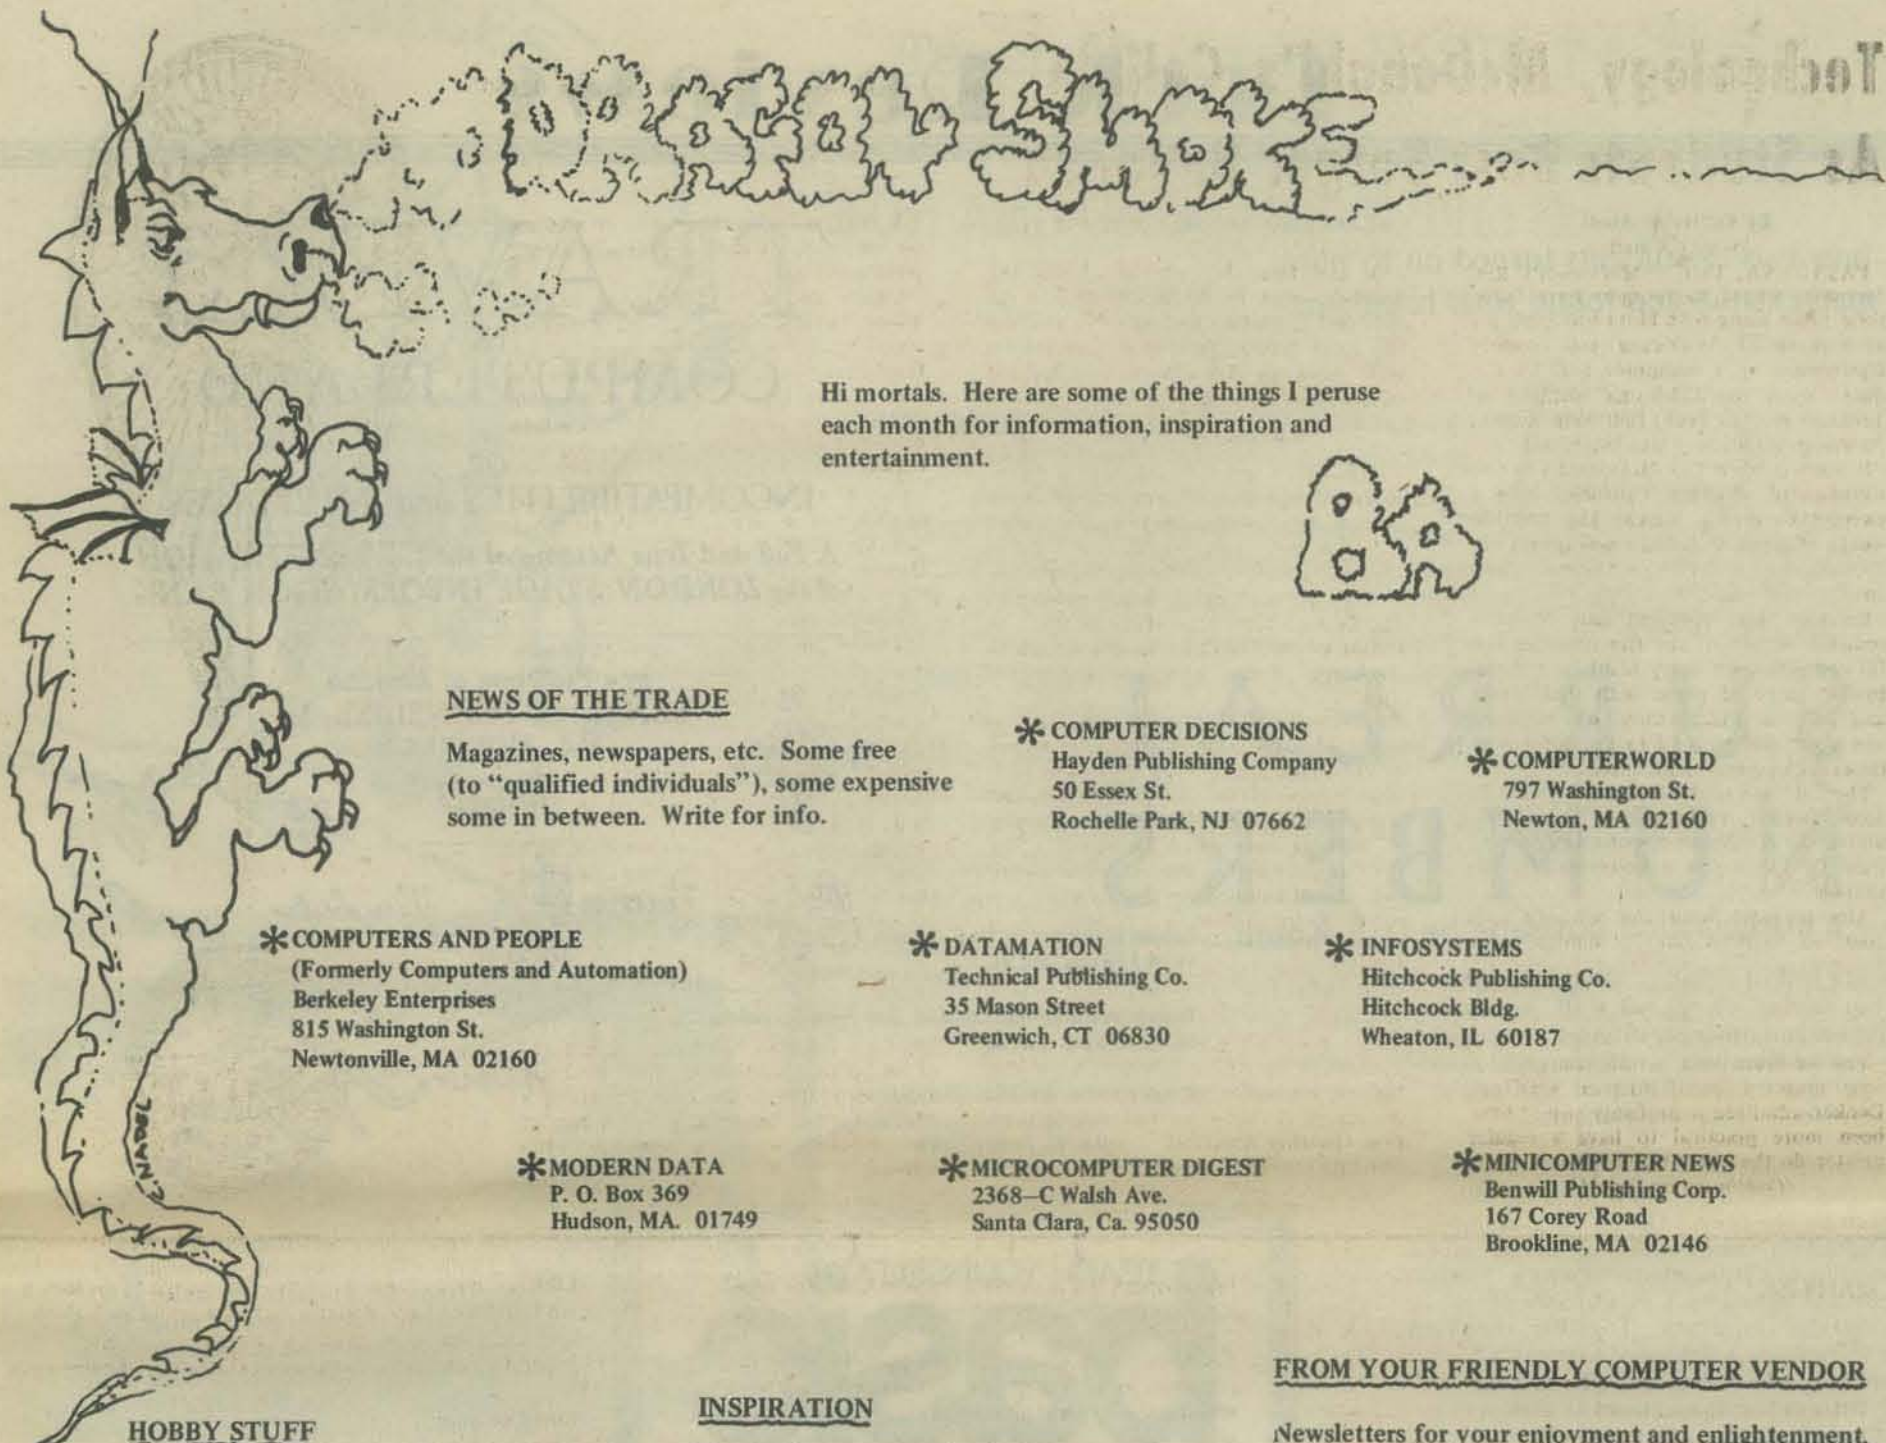 DRAGON SMOKE
Hi mortals. Here are some of the things I peruse
each month for information, inspiration and
entertainment.
NEWS OF THE TRADE
Magazines, newspapers, etc. Some free
(to “qualified individuals”), some expensive
some in between. Write for info.
* COMPUTER DECISIONS
Hayden Publishing Company
50 Essex St.
Rochelle Park, NJ 07662
* COMPUTERWORLD
797 Washington St.
Newton, MA 02160
* COMPUTERS AND PEOPLE
(Formerly Computers and Automation)
Berkeley Enterprises
815 Washington St.
Newtonville, MA 02160
* DATAMATION
Technical Publishing Co.
35 Mason Street
Greenwich, CT 06830
* INFOSYSTEMS
Hitchcock Publishing Co.
Hitchcock Bldg.
Wheaton, IL 60187
* MODERN DATA
P. O. Box 369
Hudson, MA. 01749
* MICROCOMPUTER DIGEST
2368–C Walsh Ave.
Santa Clara, Ca. 95050
* MINICOMPUTER NEWS
Benwill Publishing Corp.
167 Corey Road
Brookline, MA 02146
HOBBY STUFF
INSPIRATION
FROM YOUR FRIENDLY COMPUTER VENDOR
Newsletters for your enjoyment and enlightenment.